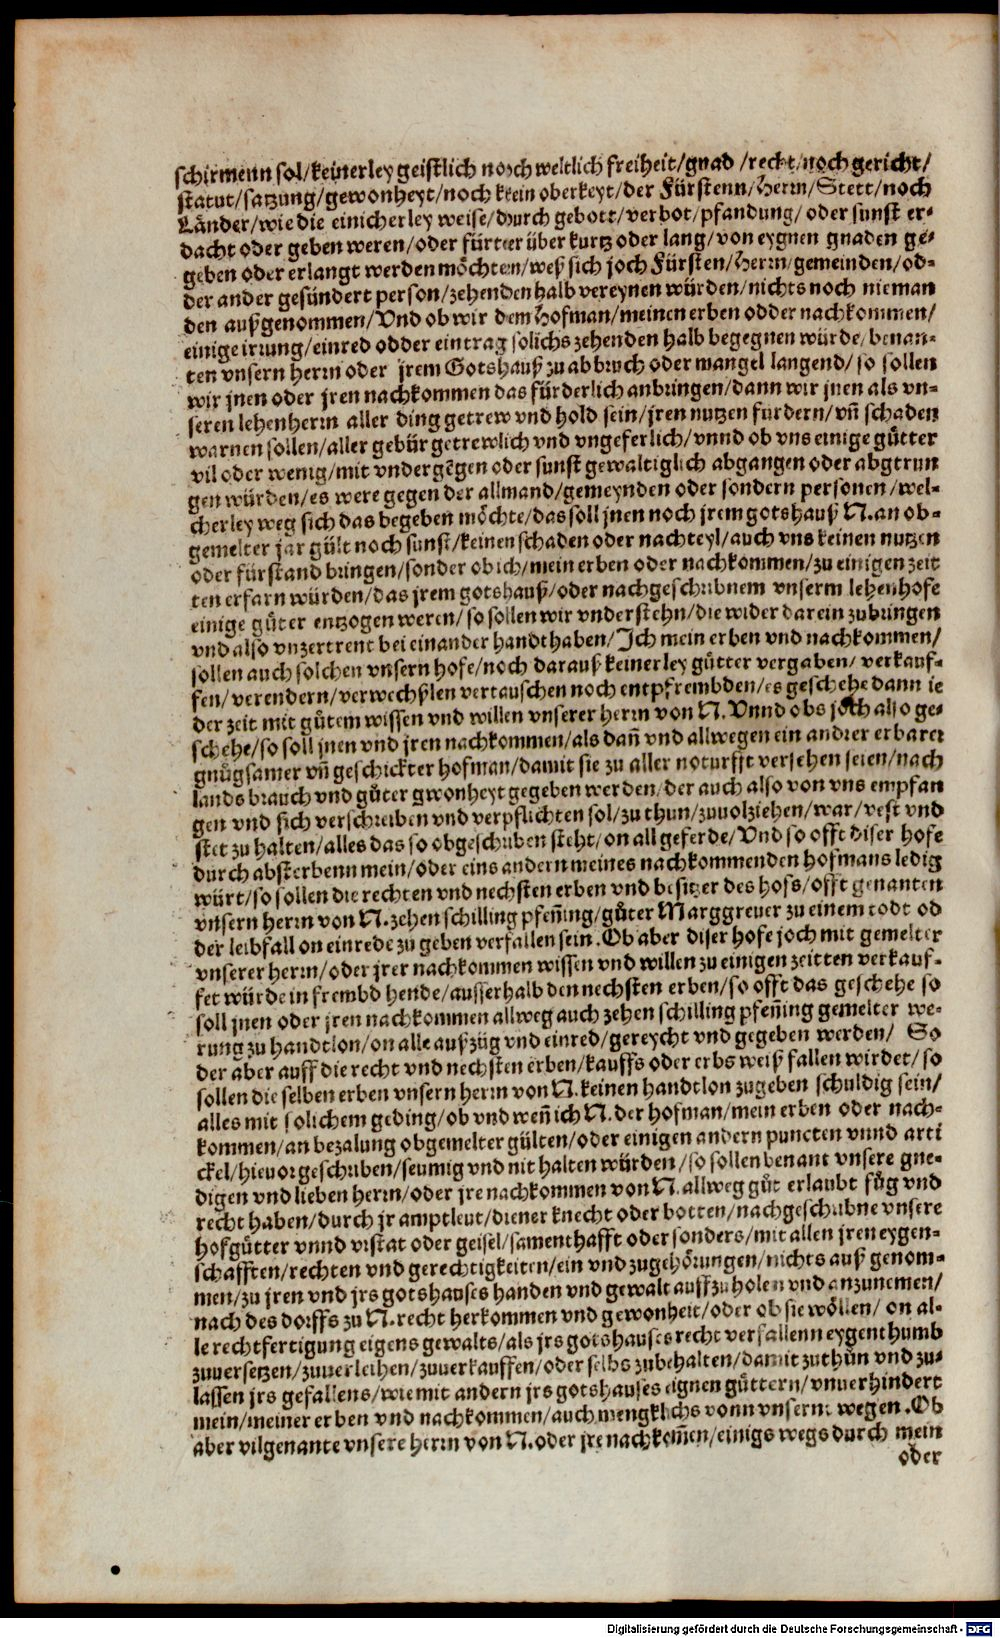 schirmenn sol/keinerley geistlich noch weltlich freiheit/gnad/recht/noch gericht/
statut/satzung/gewonheyt/noch kein oberkeyt/der Fürstenn/Herrn/Stett/noch
Länder/wie die einicherley weise/durch gebott/verbot/pfandung/oder sunst er-
dacht oder geben weren/oder fürter über kurtz oder lang/von eygnen gnaden ge-
geben oder erlangt werden möchten/weß sich joch Fürsten/Herrn/gemeinden/od-
der ander gesündert person/zehenden halb vereynen würden/nichts noch nieman
den außgenommen/Vnd ob wir dem Hofman/meinen erben odder nachkommen/
einige irrung/einred odder eintrag solichs zehenden halb begegnen würde/benan-
ten vnsern herrn oder jrem Gotshauß zu abbruch oder mangel langend/so sollen
wir jnen oder jren nachkommen das fürderlich anbringen/dann wir jnen als vn-
seren lehenherrn aller ding getrew vnd hold sein/jren nutzen furdern/vñ schaden
warnen sollen/aller gebür getrewlich vnd vngeferlich/vnnd ob vns einige gůtter
vil oder wenig/mit vndergēgen oder sunst gewaltiglich abgangen oder abgtrun
gen würden/es were gegen der allmand/gemeynden oder sondern personen/wel-
cherley weg sich das begeben möchte/das soll jnen noch jrem gotshauß N. an ob-
gemelter jar gült noch sunst/keinen schaden oder nachteyl/auch vns keinen nutzen
oder fürstand bringen/sonder ob ich/mein erben oder nachkommen/zu einigen zeit
ten erfarn würden/das jrem gotshauß/oder nachgeschribnem vnserm lehenhofe
einige gůter entzogen weren/so sollen wir vnderstehn/die wider darein zubringen
vnd also vnzertrent bei einander handthaben/Ich mein erben vnd nachkommen/
sollen auch solchen vnsern hofe/noch darauß keinerley gůtter vergaben/verkauf-
fen/verendern/verwechßlen vertauschen noch entpfrembden/es geschehe dann ie
der zeit mit gůtem wissen vnd willen vnserer herrn von N. Vnnd obs joch also ge-
schehe/so soll jnen vnd jren nachkommen/als dañ vnd allwegen ein andrer erbarer
gnůgsamer vñ geschickter hofman/damit sie zu aller noturfft versehen seien/nach
lands brauch vnd gůter gwonheyt gegeben werden/der auch also von vns empfan
gen vnd sich verschreiben vnd verpflichten sol/zu thun/zuuolziehen/war/vest vnd
stet zu halten/alles das so obgeschriben steht/on all geferde/Vnd so offt diser hofe
durch absterbenn mein/oder eins andern meines nachkommenden hofmans ledig
würt/so sollen die rechten vnd nechsten erben vnd besitzer des hofs/offt genanten
vnsern herrn von N. zehen schilling pfeñing/gůter Marggreuer zu einem todt od
der leibfall on einrede zu geben verfallen sein. Ob aber diser hofe joch mit gemelter
vnserer herrn/oder jrer nachkommen wissen vnd willen zu einigen zeitten verkauf-
fet würde in frembd hende/ausserhalb den nechsten erben/so offt das geschehe so
soll jnen oder jren nachkommen allweg auch zehen schilling pfeñing gemelter we-
rung zu handtlon/on alle außzüg vnd einred/gereycht vnd gegeben werden/ So
der aber auff die recht vnd nechsten erben/kauffs oder erbs weiß fallen wirdet/so
sollen die selben erben vnsern herrn von N. keinen handtlon zugeben schuldig sein/
alles mit solichem geding/ob vnd weñ ich N. der hofman/mein erben oder nach-
kommen/an bezalung obgemelter gülten/oder einigen andern puncten vnnd arti
ckel/hieuorgeschriben/seumig vnd nit halten würden/so sollen benant vnsere gne-
digen vnd lieben herrn/oder jre nachkommen von N. allweg gůt erlaubt fůg vnd
recht haben/durch jr amptleut/diener knecht oder botten/nachgeschribne vnsere
hofgůtter vnnd vrstat oder geisel/samenthafft oder sonders/mit allen jren eygen-
schafften/rechten vnd gerechtigkeiten/ein vnd zugehörungen/nichts auß genom-
men/zu jren vnd jrs gotshauses handen vnd gewalt auffzuholen vnd anzunemen/
nach des dorffs zu N. recht herkommen vnd gewonheit/oder ob sie wöllen/on al-
le rechtfertigung eigens gewalts/als jrs gotshauses recht verfallenn eygenthumb
zuuersetzen/zuuerleihen/zuuerkauffen/oder selbs zubehalten/damit zuthůn vnd zu-
lassen jrs gefallens/wie mit andern jrs gotshauses eignen gůttern/vnuerhindert
mein/meiner erben vnd nachkommen/auch mengklichs vonn vnsern wegen. Ob
aber vilgenante vnsere herrn von N. oder jre nachkom̃en/einigs wegs durch mein
oder
Digitalisierung gefördert durch die Deutsche Forschungsgemeinschaft - DFG